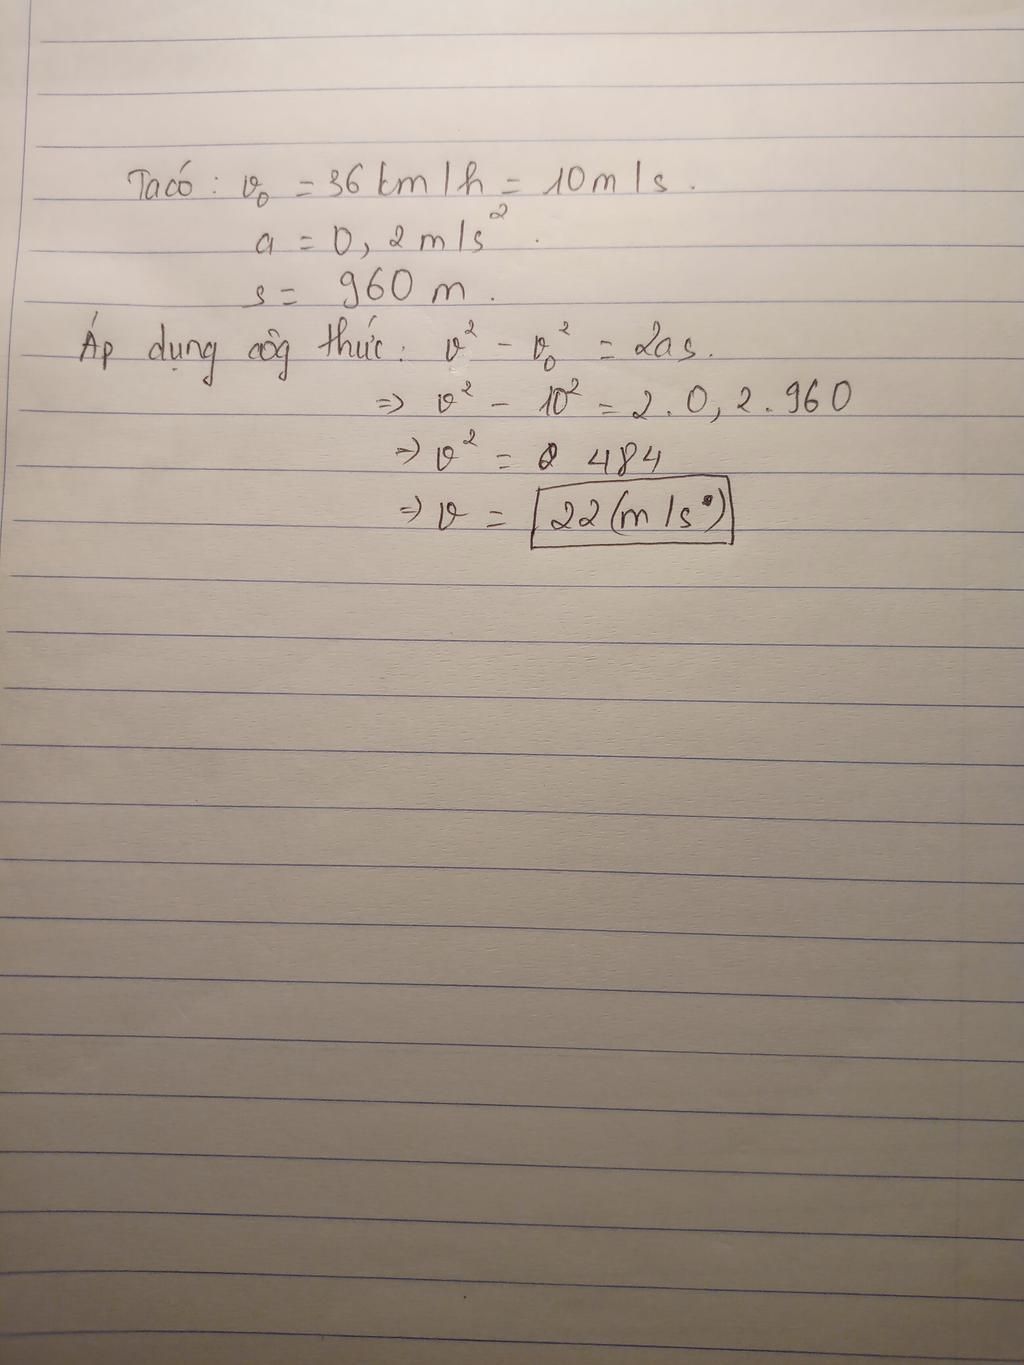 Ta có : v₀ = 36 km/h = 10 m/s.
a = 0,2 m/s².
s = 960 m.
Áp dụng côg thức: v² - v₀² = 2as.
=> v² - 10² = 2.0,2.960
=> v² = 484
=> v = 22 (m/s)